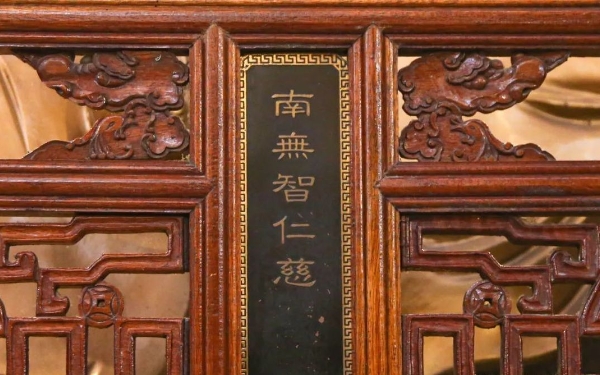 南無智仁慈